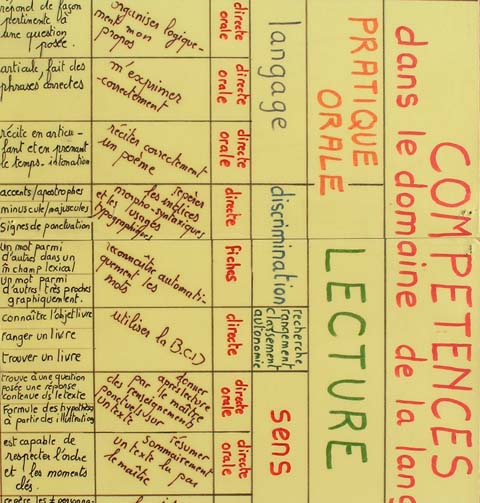 COMPETENCES
dans le domaine de la lang
PRATIQUE
ORALE
LECTURE
langage
discrimination
recherche
rangement
classement
autonomie
sens
directe
orale
organiser logique-
ment mon
propos
répond de façon
pertinente à
une question
posée.
directe
orale
m'exprimer
correctement
articule, fait des
phrases correctes
directe
orale
réciter correctement
un poème
récite en articu-
lant et en prenant
le temps - intonation
directe
repérer
les indices
morpho-syntaxiques
et les usages
typographiques
accents/apostrophes
minuscule/majuscules
signes de ponctuation
fiches
reconnaître automati-
quement les
mots
un mot parmi
d'autres dans un
m champ lexical
un mot parmi
d'autres très proches
graphiquement.
directe
utiliser la B.C.D
connaître l'objet livre
ranger un livre
trouver un livre
directe
orale
donner
après lecture
par le maître
des renseignements
ponctuels sur
un texte
trouve à une question
posée une réponse
contenue ds le texte
Formule des hypothèses
à partir des illustrations
directe
orale
résumer
sommairement
un texte lu par
le maître
est capable de
respecter l'ordre
et les moments
clés.
repère les ≠ personna-